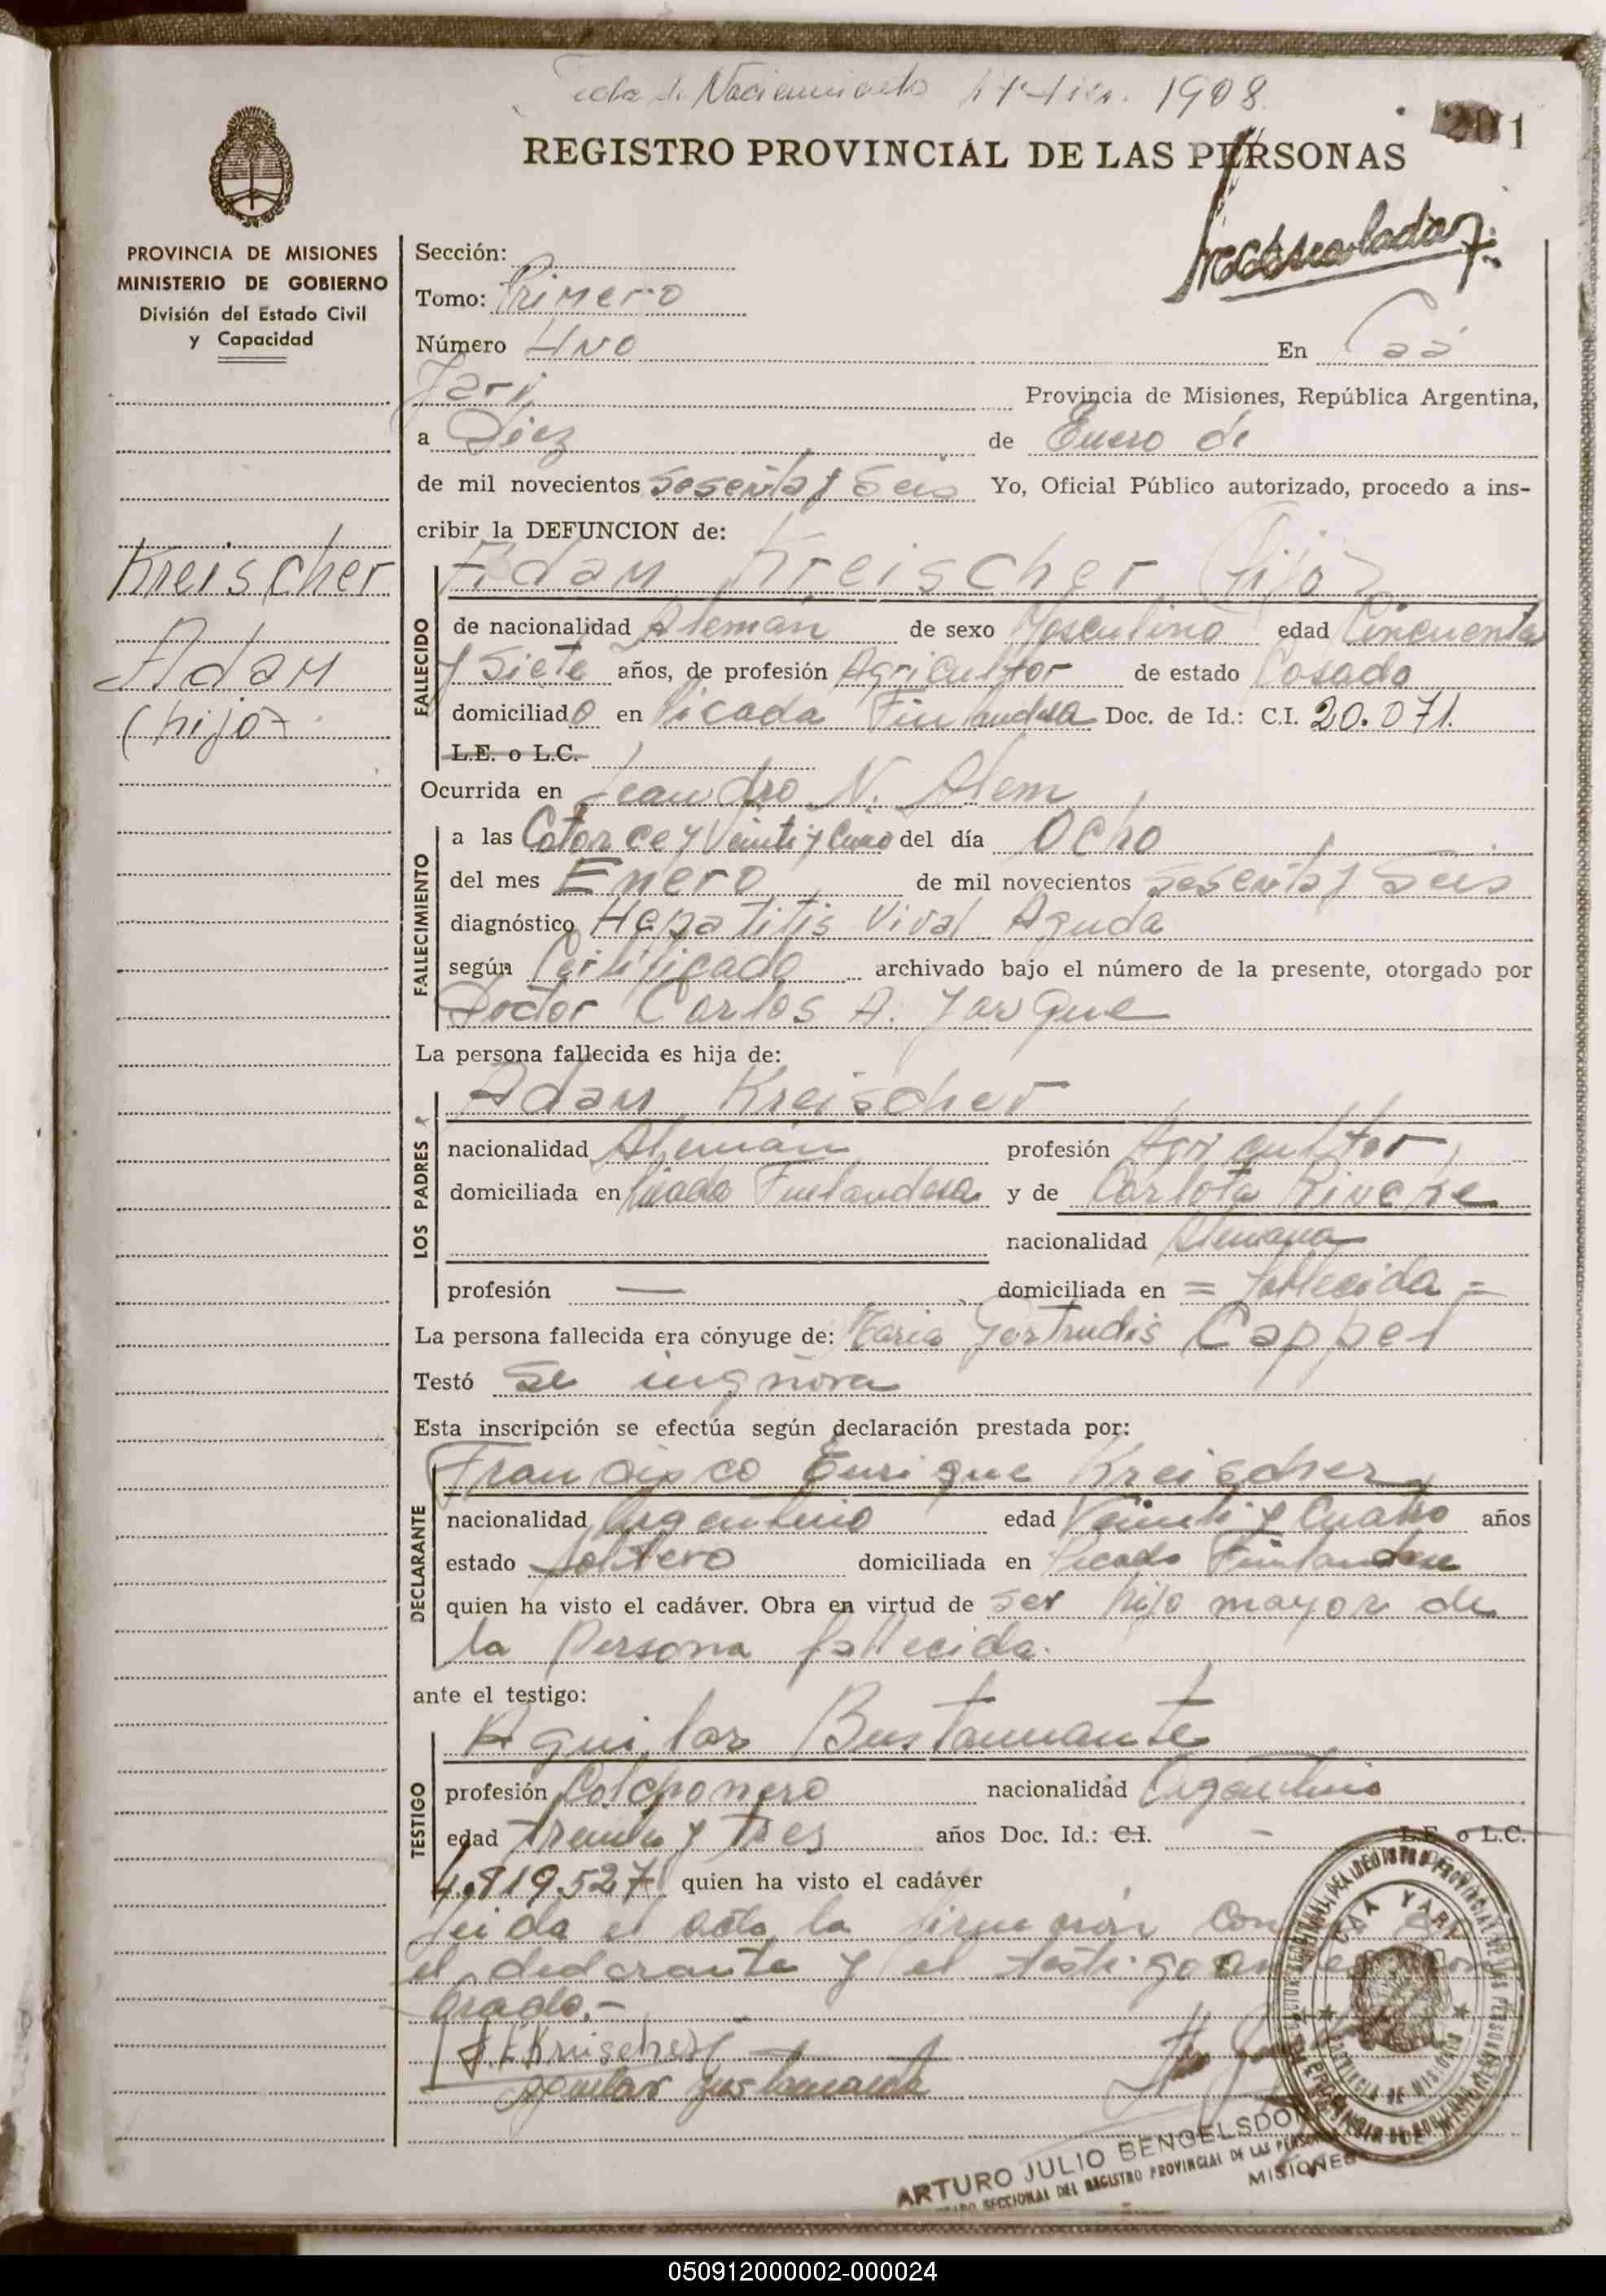 de Nacimiento 1908
201
REGISTRO PROVINCIAL DE LAS PERSONAS
PROVINCIA DE MISIONES
MINISTERIO DE GOBIERNO
División del Estado Civil
y Capacidad
Kreischer
Adam
(hijo)
Sección:
Tomo: Primero
Número UNO En Caá
Yari Provincia de Misiones, República Argentina,
a Diez de Enero de
de mil novecientos Sesenta y Seis Yo, Oficial Público autorizado, procedo a ins-
cribir la DEFUNCION de:
Adam Kreischer (hijo)
FALLECIDO
de nacionalidad Alemán de sexo Masculino edad Cincuenta
y Siete años, de profesión Agricultor de estado Casado
domiciliado en Picada Finlandesa Doc. de Id.: C.I. 20.071.
L.E. o L.C.
Ocurrida en Leandro N. Alem
FALLECIMIENTO
a las Catorce y Veinti y Cinco del día Ocho
del mes Enero de mil novecientos Sesenta y Seis
diagnóstico Hepatitis Viral Aguda
según Certificado archivado bajo el número de la presente, otorgado por
Doctor Carlos A. Jarque
La persona fallecida es hija de:
Adam Kreischer
LOS PADRES
nacionalidad Alemán profesión Agricultor
domiciliada en Picada Finlandesa y de Carlota Rincke
nacionalidad Alemana
profesión — domiciliada en = fallecida =
La persona fallecida era cónyuge de: Maria Gertrudis Cappel
Testó Se ingnora
Esta inscripción se efectúa según declaración prestada por:
Francisco Enrique Kreischer
DECLARANTE
nacionalidad Argentino edad Veinti y Cuatro años
estado Soltero domiciliada en Picada Finlandesa
quien ha visto el cadáver. Obra en virtud de ser hijo mayor de
la Persona fallecida.
ante el testigo:
Aguilar Bustamante
TESTIGO
profesión Colchonero nacionalidad Argentino
edad Treinta y Tres años Doc. Id.: C.I. — L.E. o L.C.
4.819.527 quien ha visto el cadáver
Leida el acta la firmaron con
el declarante y el testigo
brado.-
F E Kreischer
Aguilar Bustamante
CAA YARI
PROVINCIA DE MISIONES
ARTURO JULIO BENGELSDOR
SECCIONAL DEL REGISTRO PROVINCIAL DE LAS PERSO
MISIONES
050912000002-000024